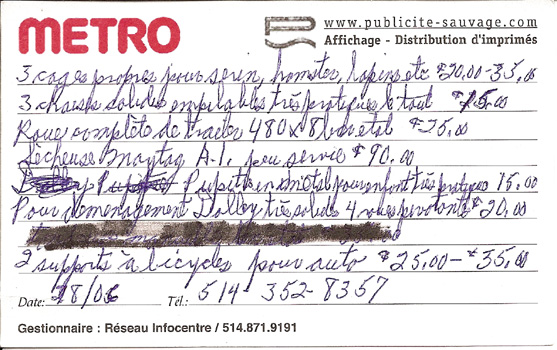 METRO
www.publicite-sauvage.com
Affichage - Distribution d'imprimés
3 cages propres pour serin, hamster, lapins etc $20,00-35,00
3 chaises solides empilables très pratiques le tout $15,00
Roue complète de trailer 480x8 bon etat $25,00
Sécheuse Maytag A-1, peu servie $90.00
Pupitre en métal pour enfant très pratique 15.00
Pour déménagement Dolley très solide 4 roues pivotants $20,00
2 supports à bicycles pour auto $25,00-$35,00
Date: 18/06 Tél.: 514-352-8357
Gestionnaire : Réseau Infocentre / 514.871.9191